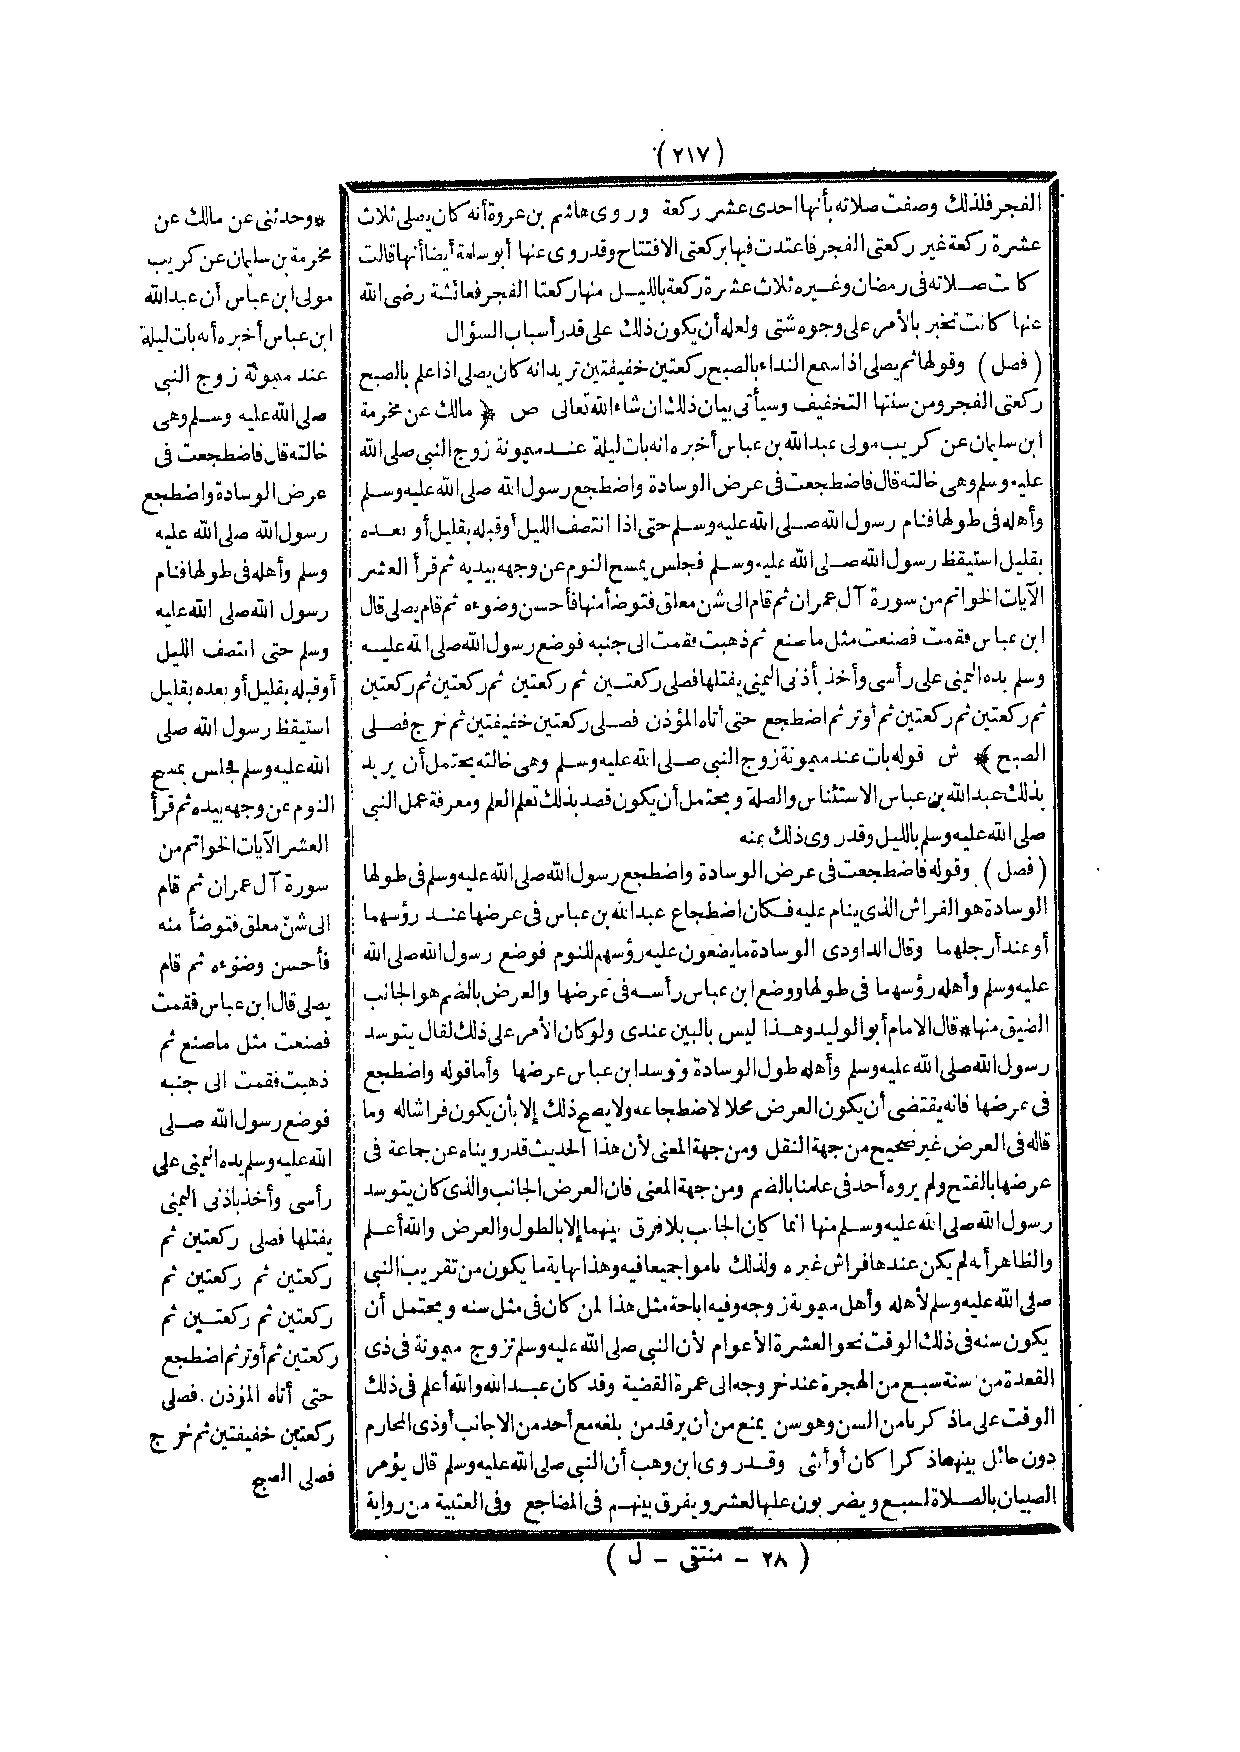 (٢١٧)
الفجر فلذلك وصفت صلاته بأنها احدى عشر ركعة وروى هاشم بن عروة أنه كان يصلى ثلاث
عشرة ركعة غير ركعتى الفجر فاعتدت فيها بركعتى الافتتاح وقدروى عنها أبو سلمة أيضا أنها قالت
كانت صلاته فى رمضان وغيره ثلاث عشرة ركعة بالليل منها ركعتا الفجر فعائشة رضى الله
عنها كانت تخبر بالأمر على وجوه شتى ولعله أن يكون ذلك على قدر أسباب السؤال
(فصل) وقولها ثم يصلى اذا سمع النداء بالصبح ركعتين خفيفتين تريد انه كان يصلى اذا علم بالصبح
ركعتى الفجر ومن سنتها التخفيف وسيأتى بيان ذلك ان شاء الله تعالى ص ﴿ مالك عن مخرمة
ابن سليمان عن كريب مولى عبد الله بن عباس أخبره انه بات ليلة عند ميمونة زوج النبى صلى الله
عليه وسلم وهى خالته قال فاضطجعت فى عرض الوسادة واضطجع رسول الله صلى الله عليه وسلم
وأهله فى طولها فنام رسول الله صلى الله عليه وسلم حتى اذا انتصف الليل أو قبله بقليل أو بعده
بقليل استيقظ رسول الله صلى الله عليه وسلم فجلس يمسح النوم عن وجهه بيديه ثم قرأ العشر
الآيات الخواتم من سورة آل عمران ثم قام الى شن معلق فتوضأ منها فأحسن وضوءه ثم قام يصلى قال
ابن عباس فقمت فصنعت مثل ما صنع ثم ذهبت فقمت الى جنبه فوضع رسول الله صلى الله عليه
وسلم يده اليمنى على رأسى وأخذ بأذنى اليمنى يفتلها فصلى ركعتين ثم ركعتين ثم ركعتين ثم ركعتين
ثم ركعتين ثم ركعتين ثم أوتر ثم اضطجع حتى أتاه المؤذن فصلى ركعتين خفيفتين ثم خرج فصلى
الصبح ﴾ ش قوله بات عند ميمونة زوج النبى صلى الله عليه وسلم وهى خالته يحتمل أن يريد
بذلك عبد الله بن عباس الاستئناس والصلة ويحتمل أن يكون قصد بذلك تعلم العلم ومعرفة عمل النبى
صلى الله عليه وسلم بالليل وقدروى ذلك عنه
(فصل) وقوله فاضطجعت فى عرض الوسادة واضطجع رسول الله صلى الله عليه وسلم فى طولها
الوسادة هو الفراش الذى ينام عليه فكان اضطجاع عبد الله بن عباس فى عرضها عند رؤسهما
أو عند أرجلهما وقال الداودى الوسادة ما يضعون عليه رؤسهم للنوم فوضع رسول الله صلى الله
عليه وسلم وأهله رؤسهما فى طولها ووضع ابن عباس رأسه فى عرضها والعرض بالضم هو الجانب
الضيق منها * قال الامام أبو الوليد وهذا ليس بالبين عندى ولو كان الأمر على ذلك لقال يتوسد
رسول الله صلى الله عليه وسلم وأهله طول الوسادة وتوسد ابن عباس عرضها وأما قوله واضطجع
فى عرضها فانه يقتضى أن يكون العرض محلا لاضطجاعه ولا يصح ذلك إلا بأن يكون فراشا له وما
قاله فى العرض غير صحيح من جهة النقل ومن جهة المعنى لأن هذا الحديث قد رويناه عن جماعة فى
عرضها بالفتح ولم يروه أحد فى علمنا بالضم ومن جهة المعنى فان العرض الجانب والذى كان يتوسد
رسول الله صلى الله عليه وسلم منها انما كان الجانب بلا فرق بينهما إلا بالطول والعرض والله أعلم
والظاهر أنه لم يكن عندها فراش غيره ولذلك ناموا جميعا فيه وهذا نهاية ما يكون من تقريب النبى
صلى الله عليه وسلم لأهله وأهل ميمونة زوجه وفيه اباحة مثل هذا لمن كان فى مثل سنه ويحتمل أن
يكون سنه فى ذلك الوقت نحو العشرة الأعوام لأن النبى صلى الله عليه وسلم تزوج ميمونة فى ذى
القعدة من سنة سبع من الهجرة عند خروجه الى عمرة القضية وقد كان عبد الله والله أعلم فى ذلك
الوقت على ما ذكرنا من السن وهو سن يمنع من أن يرقد من بلغه مع أحد من الاجانب أو ذى المحارم
دون حائل بينهما ذكرا كان أو أنثى وقد روى ابن وهب أن النبى صلى الله عليه وسلم قال يؤمر
الصبيان بالصلاة لسبع ويضربون عليها لعشر ويفرق بينهم فى المضاجع وفى العتبية من رواية
* وحدثنى عن مالك عن
مخرمة بن سليمان عن كريب
مولى ابن عباس أن عبد الله
ابن عباس أخبره أنه بات ليلة
عند ميمونة زوج النبى
صلى الله عليه وسلم وهى
خالته قال فاضطجعت فى
عرض الوسادة واضطجع
رسول الله صلى الله عليه
وسلم وأهله فى طولها فنام
رسول الله صلى الله عليه
وسلم حتى انتصف الليل
أو قبله بقليل أو بعده بقليل
استيقظ رسول الله صلى
الله عليه وسلم فجلس يمسح
النوم عن وجهه بيده ثم قرأ
العشر الآيات الخواتم من
سورة آل عمران ثم قام
الى شنّ معلق فتوضأ منه
فأحسن وضوءه ثم قام
يصلى قال ابن عباس فقمت
فصنعت مثل ما صنع ثم
ذهبت فقمت الى جنبه
فوضع رسول الله صلى
الله عليه وسلم يده اليمنى على
رأسى وأخذ بأذنى اليمنى
يفتلها فصلى ركعتين ثم
ركعتين ثم ركعتين ثم
ركعتين ثم ركعتين ثم
ركعتين ثم أوتر ثم اضطجع
حتى أتاه المؤذن فصلى
ركعتين خفيفتين ثم خرج
فصلى الصبح
(٢٨ - منتقى - ل)